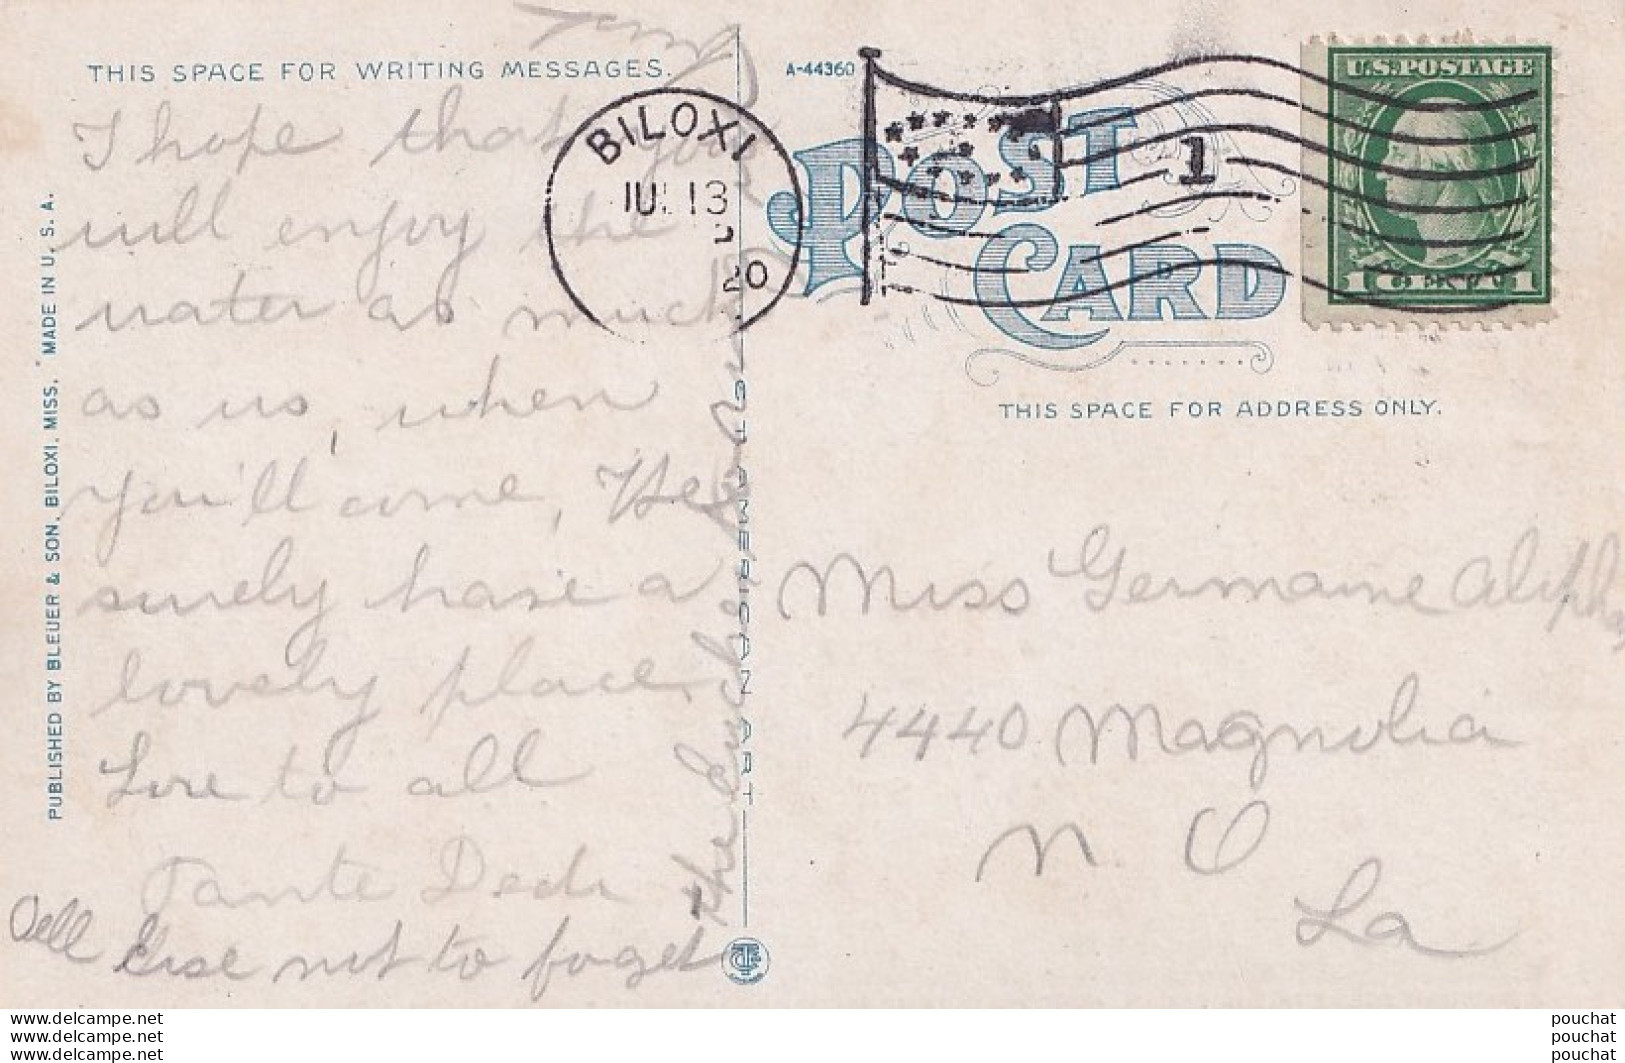 THIS SPACE FOR WRITING MESSAGES.
I hope that you
will enjoy the
water as much
as us, when
you'll come, The
surely have a
lovely place.
Love to all
Tante Dede
Tell Elise not to forget
the
PUBLISHED BY BLEUER & SON, BILOXI, MISS. MADE IN U. S. A.
"C. T. AMERICAN ART"
A-44360
POST CARD
BILOXI
JUL 13
20
1
U.S. POSTAGE
1 CENT 1
THIS SPACE FOR ADDRESS ONLY.
Miss Germaine
4440 Magnolia
N. O
La
www.delcampe.net
www.delcampe.net
www.delcampe.net
pouchat
pouchat
pouchat